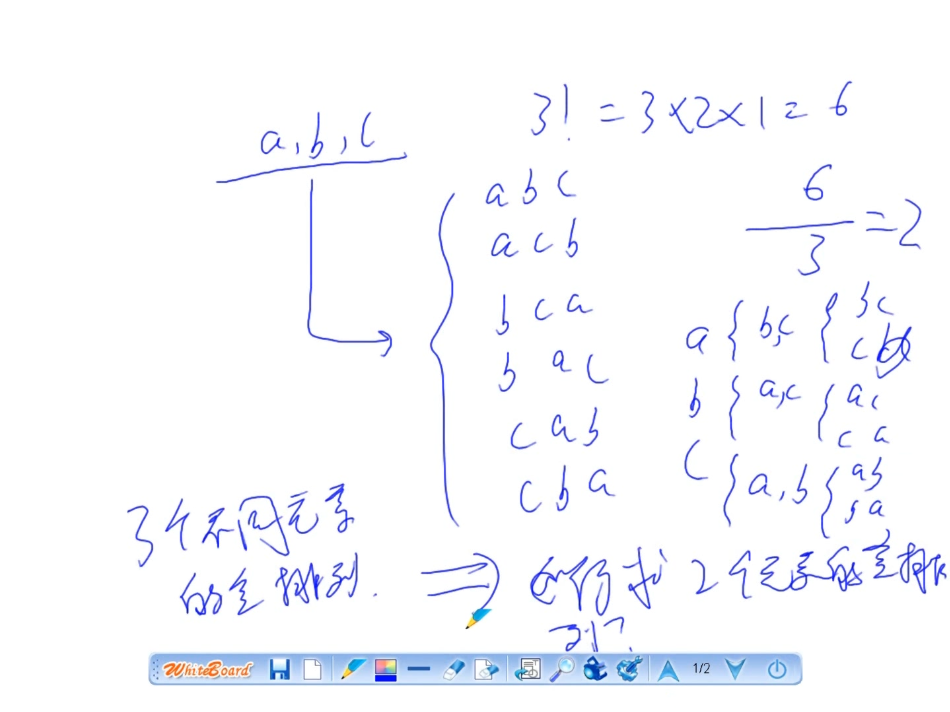 3! = 3×2×1 = 6
a, b, c
a b c
a c b
b c a
b a c
c a b
c b a
6
3
=2
a { b,c { bc
cb
b { a,c { ac
ca
c { a,b { ab
ba
3个不同元素
的全排列.
⇒ 如何求 2个元素的全排
列?
WhiteBoard
1/2